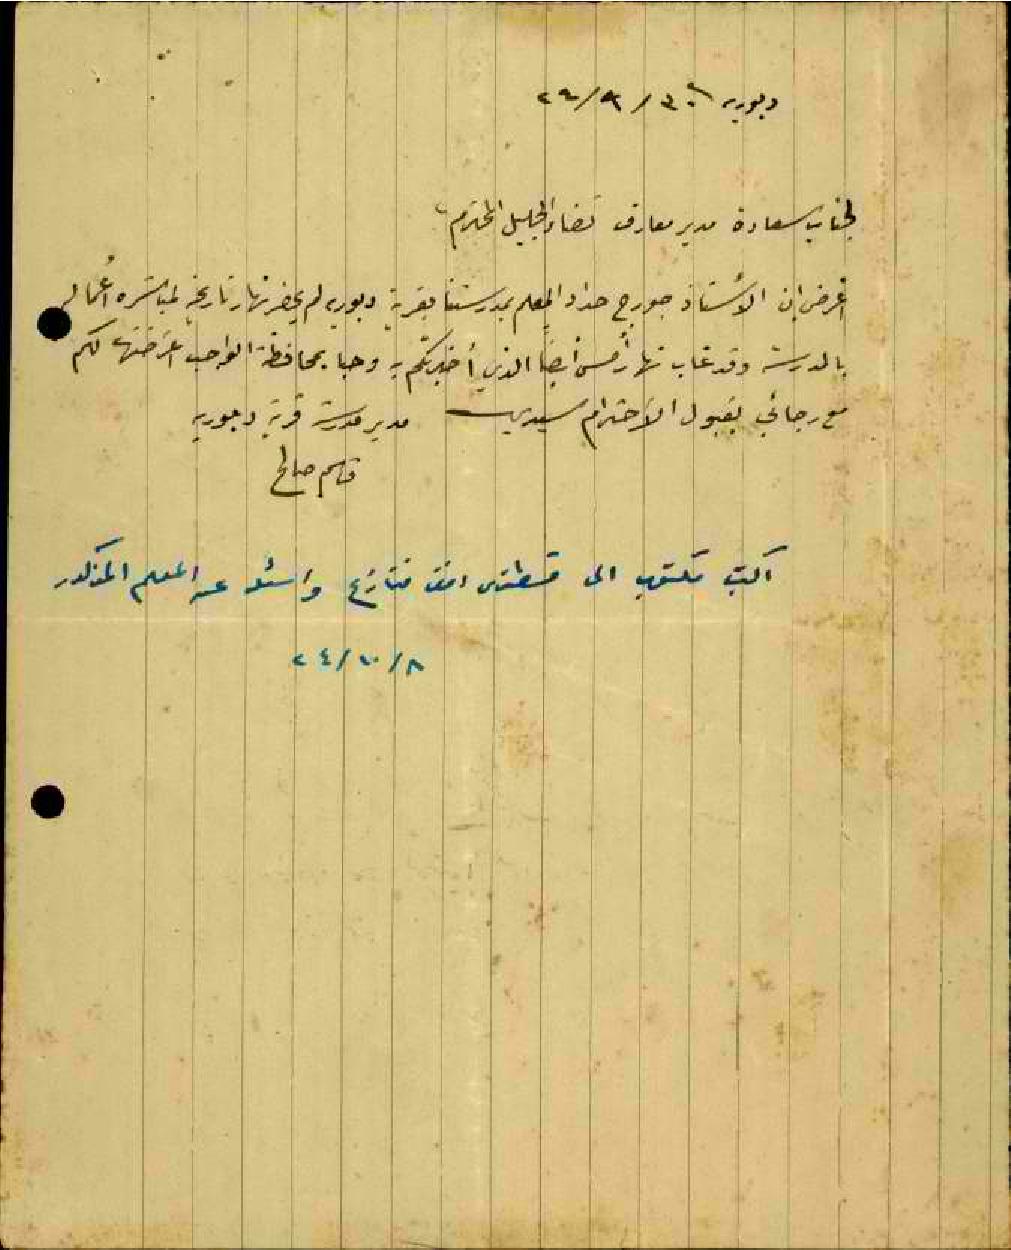 دبوريه في ٣٠/٩/٢٤
لجناب سعادة مدير معارف قضاء الجليل المحترم
أعرض ان الأستاذ جورج حداد المعلم بمدرستنا بقرية دبوريه لم يحضر نهار تاريخه لمباشرة أعماله
بالمدرسة وقد غاب نهار أمس أيضاً الذي أخبرتكم به وحبا بمحافظة الواجب اعرضتها لكم
مع رجائي بقبول الاحترام سيدي مدير مدرسة قرية دبوريه
قاسم صالح
اكتب مكتوب الى قسطندي افندي قنازع واسئله عن المعلم المذكور
٢٤/١٠/٨